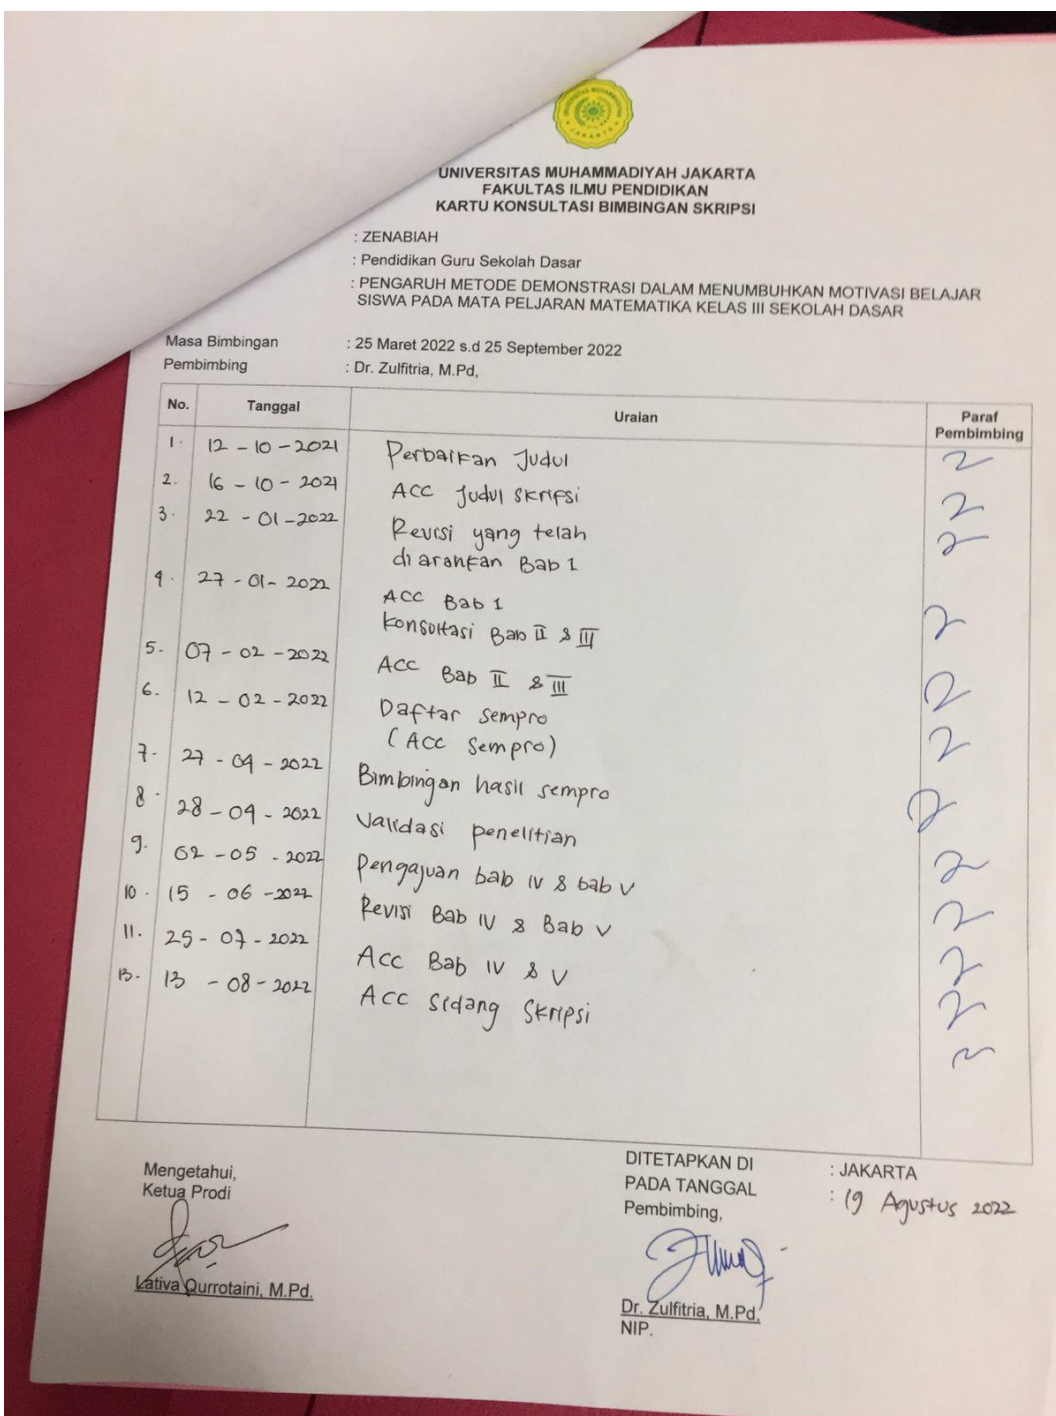 UNIVERSITAS MUHAMMADIYAH JAKARTA
FAKULTAS ILMU PENDIDIKAN
KARTU KONSULTASI BIMBINGAN SKRIPSI
: ZENABIAH
: Pendidikan Guru Sekolah Dasar
: PENGARUH METODE DEMONSTRASI DALAM MENUMBUHKAN MOTIVASI BELAJAR
SISWA PADA MATA PELJARAN MATEMATIKA KELAS III SEKOLAH DASAR
Masa Bimbingan : 25 Maret 2022 s.d 25 September 2022
Pembimbing : Dr. Zulfitria, M.Pd,
No. Tanggal Uraian Paraf
Pembimbing
1. 12 - 10 - 2021 Perbaikan Judul
2. 16 - 10 - 2021 ACC Judul Skripsi
3. 22 - 01 - 2022 Revisi yang telah
diarahkan Bab 1
4. 27 - 01 - 2022 ACC Bab 1
Konsultasi Bab II & III
5. 07 - 02 - 2022 ACC Bab II & III
6. 12 - 02 - 2022 Daftar Sempro
(ACC Sempro)
7. 27 - 04 - 2022 Bimbingan hasil sempro
8. 28 - 04 - 2022 Validasi penelitian
9. 02 - 05 - 2022 Pengajuan bab IV & bab V
10. 15 - 06 - 2022 Revisi Bab IV & Bab V
11. 25 - 07 - 2022 Acc Bab IV & V
13. 13 - 08 - 2022 Acc Sidang Skripsi
Mengetahui,
Ketua Prodi
Lativa Qurrotaini, M.Pd.
DITETAPKAN DI : JAKARTA
PADA TANGGAL : 19 Agustus 2022
Pembimbing,
Dr. Zulfitria, M.Pd,
NIP.